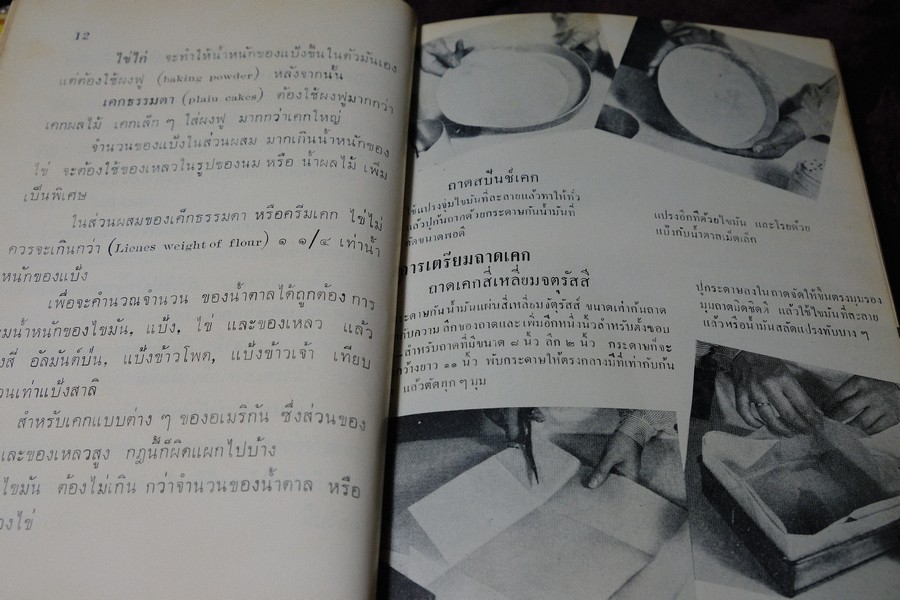 12
ไข่ไก่ จะทำให้น้ำหนักของแป้งขึ้นในตัวมันเอง
แต่ต้องใช้ผงฟู (baking powder) หลังจากนั้น
เคกธรรมดา (plain cakes) ต้องใช้ผงฟูมากกว่า
เคกผลไม้ เคกเล็ก ๆ ใส่ผงฟู มากกว่าเคกใหญ่
จำนวนของแป้งในส่วนผสม มากเกินน้ำหนักของ
ไข่ จะต้องใช้ของเหลวในรูปของนม หรือ น้ำผลไม้ เพิ่ม
เป็นพิเศษ
ในส่วนผสมของเค็กธรรมดา หรือครีมเคก ไข่ไม่
ควรจะเกินกว่า (Lienes weight of flour) ๑ ๑/๔ เท่าน้ำ
หนักของแป้ง
เพื่อจะคำนวณจำนวน ของน้ำตาลได้ถูกต้อง การ
น้ำหนักของไขมัน, แป้ง, ไข่ และของเหลว แล้ว
อัลมันต์ป่น, แป้งข้าวโพด, แป้งข้าวเจ้า เทียบ
เท่าแป้งสาลี
สำหรับเคกแบบต่าง ๆ ของอเมริกัน ซึ่งส่วนของ
และของเหลวสูง กฎนี้ก็ผิดแผกไปบ้าง
ไขมัน ต้องไม่เกิน กว่าจำนวนของน้ำตาล หรือ
ไข่
ถาดสปันช์เคก
ใช้แปรงจุ่มไขมันที่ละลายแล้วทาให้ทั่ว
แล้วปูก้นถาดด้วยกระดาษกันน้ำมันที่
ตัดขนาดพอดี
แปรงอีกทีด้วยไขมัน และโรยด้วย
แป้งกับน้ำตาลเม็ดเล็ก
การเตรียมถาดเคก
ถาดเคกสี่เหลี่ยมจตุรัสสี่
กระดาษกันน้ำมันแผ่นสี่เหลี่ยมจัตุรัสส์ ขนาดเท่าก้นถาด
กับความ ลึกของถาดและ เพิ่มอีกหนึ่งนิ้วสำหรับตั้งขอบ
สำหรับถาดที่มีขนาด ๘ นิ้ว ลึก ๒ นิ้ว กระดาษก็จะ
กว้างยาว ๑๑ นิ้ว พับกระดาษให้ตรงกลางมีที่เท่ากับก้น
แล้วตัดทุก ๆ มุม
ปูกระดาษลงในถาดจัดให้ขึ้นตรงมุมรอง
มุมถาดมิดชิดดี แล้วใช้ไขมันที่ละลาย
แล้วหรือน้ำมันสลัดแปรงทับบาง ๆ